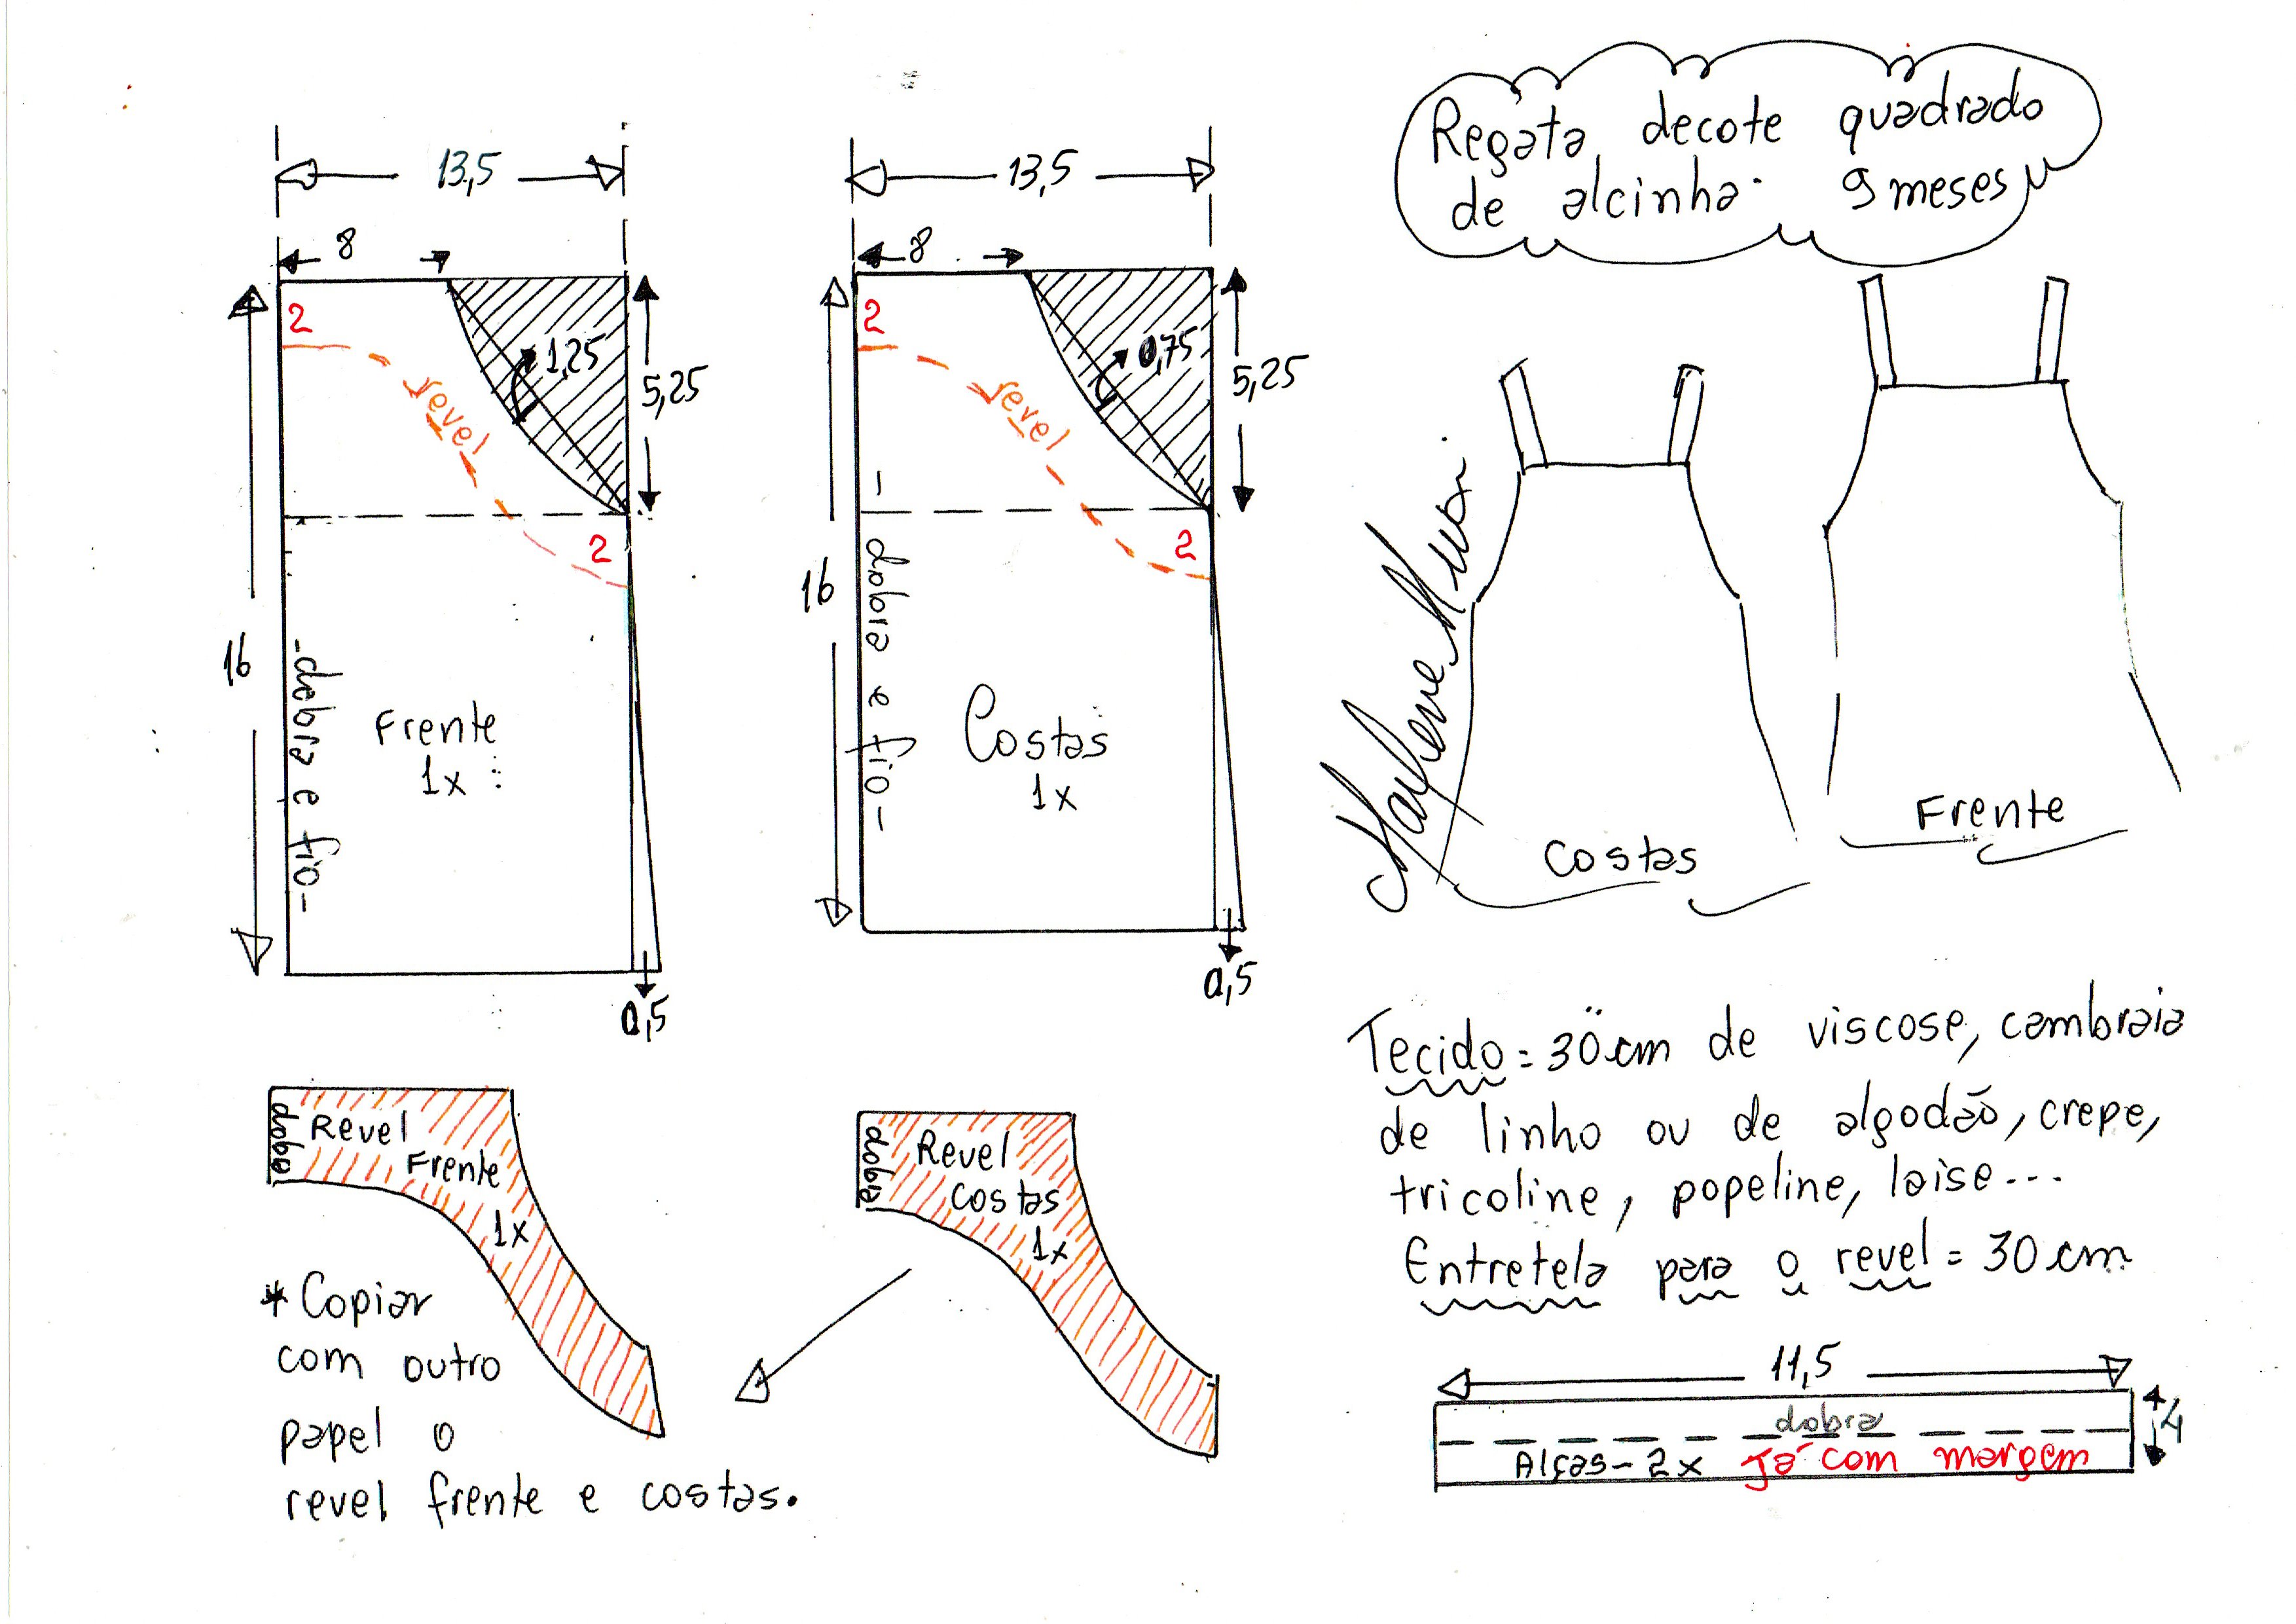 Regata decote quadrado
de alcinha. 9 meses
13,5
8
2
1,25
revel
5,25
2
16
-dobra e fio-
Frente
1x
0,5
13,5
8
2
0,75
revel
5,25
2
16
- dobra e fio-
Costas
1x
0,5
Costas
Frente
Tecido = 30 cm de viscose, cambraia
de linho ou de algodão, crepe,
tricoline, popeline, laise...
Entretela para o revel = 30 cm
dobra
Revel
Frente
1x
dobra
Revel
costas
1x
* Copiar
com outro
papel o
revel frente e costas.
11,5
4
dobra
Alças - 2x Já com margem